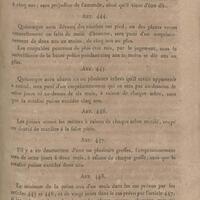 à cinq ans ; sans préjudice de l'amende, ainsi qu'il vient d'être dit.
ART. 444.
Quiconque aura dévasté des récoltes sur pied, ou des plants venus
naturellement ou faits de main d'homme, sera puni d'un emprisonnement
de deux ans au moins, de cinq ans au plus.
Les coupables pourront de plus être mis, par le jugement, sous la
surveillance de la haute police pendant cinq ans au moins et dix ans au
plus.
ART. 445.
Quiconque aura abattu un ou plusieurs arbres qu'il savait appartenir
à autrui, sera puni d'un emprisonnement
de six jours à six mois, à raison de chaque arbre, sans
ART. 446.
Les peines seront les mêmes à raison de chaque arbre mutilé, coupé
ou écorcé de manière à le faire périr.
ART. 447.
S'il y a eu destruction d'une ou plusieurs greffes, l'emprisonnement
sera de six jours à deux mois, à raison de chaque greffe, sans que la
ART. 448.
Le minimum de la peine sera d'un mois dans les cas prévus par les
articles 445 et 446, et de vingt jours dans le cas prévu par l'article 447,